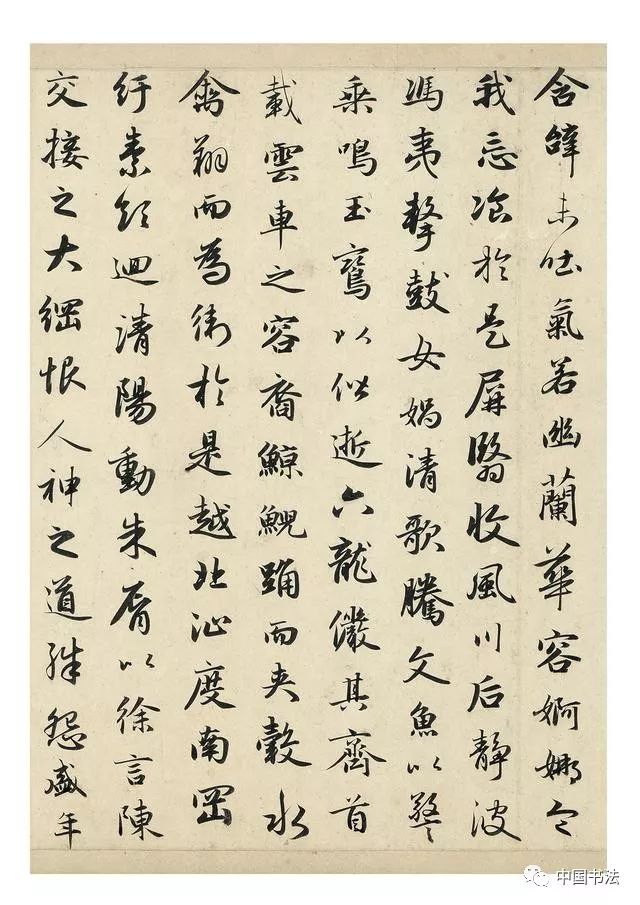 含辭未吐氣若幽蘭華容婀娜令
我忘飡於是屏翳收風川后靜波
馮夷擊鼓女媧清歌騰文魚以警
乘鳴玉鸞以偕逝六龍儼其齊首
載雲車之容裔鯨鯢踊而夾轂水
禽翔而為衛於是越北沚度南岡
紆素領迴清陽動朱脣以徐言陳
交接之大綱恨人神之道殊怨盛年
中国书法